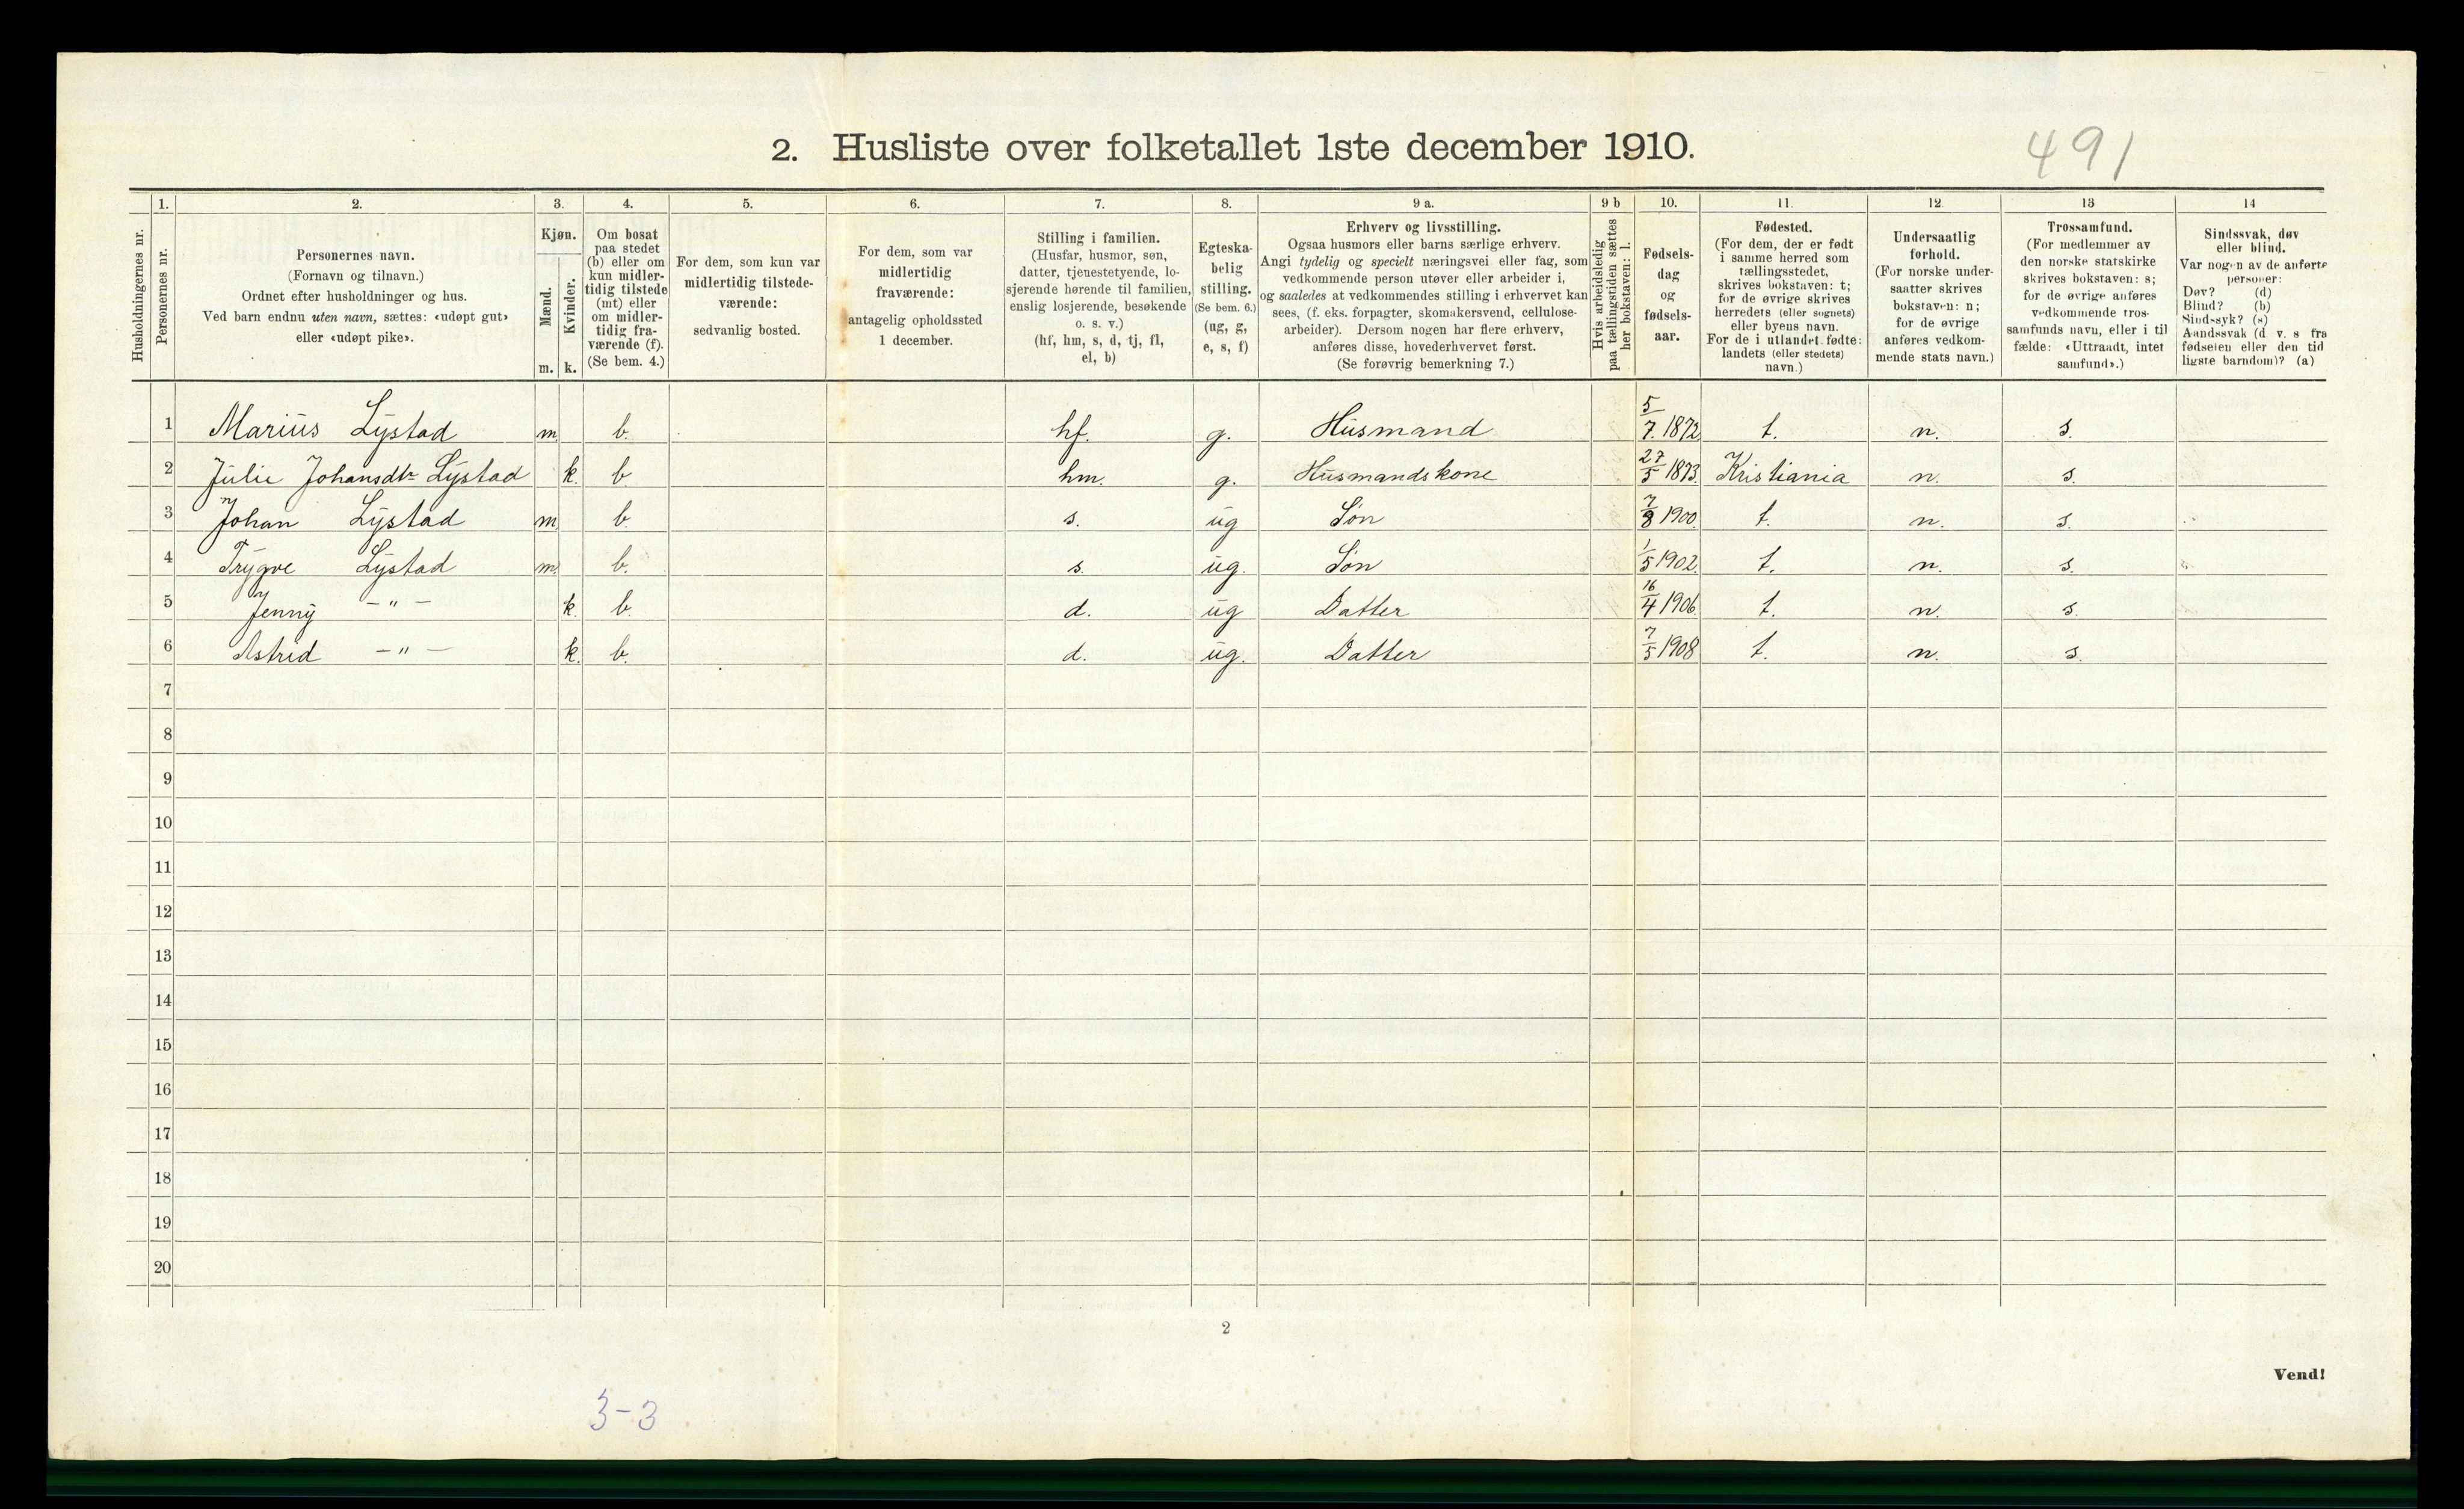 2. Husliste over folketallet 1ste december 1910.
491
Husholdningernes nr.
1.
Personernes nr.
2.
Personernes navn.
(Fornavn og tilnavn.)
Ordnet efter husholdninger og hus.
Ved barn endnu uten navn, sættes: «udøpt gut»
eller «udøpt pike».
3.
Kjøn.
Mænd.
Kvinder.
m. k.
4.
Om bosat
paa stedet
(b) eller om
kun midler-
tidig tilstede
(mt) eller
om midler-
tidig fra-
værende (f).
(Se bem. 4.)
5.
For dem, som kun var
midlertidig tilstede-
værende:
sedvanlig bosted.
6.
For dem, som var
midlertidig
fraværende:
antagelig opholdssted
1 december.
7.
Stilling i familien.
(Husfar, husmor, søn,
datter, tjenestetyende, lo-
sjerende hørende til familien,
enslig losjerende, besøkende
o. s. v.)
(hf, hm, s, d, tj, fl,
el, b)
8.
Egteska-
belig
stilling.
(Se bem. 6.)
(ug, g,
e, s, f)
9 a.
Erhverv og livsstilling.
Ogsaa husmors eller barns særlige erhverv.
Angi tydelig og specielt næringsvei eller fag, som
vedkommende person utøver eller arbeider i,
og saaledes at vedkommendes stilling i erhvervet kan
sees, (f. eks. forpagter, skomakersvend, cellulose-
arbeider). Dersom nogen har flere erhverv,
anføres disse, hovederhvervet først.
(Se forøvrig bemerkning 7.)
9 b
Hvis arbeidsledig
paa tællingstiden sættes
her bokstaven: l.
10.
Fødsels-
dag
og
fødsels-
aar.
11.
Fødested.
(For dem, der er født
i samme herred som
tællingsstedet,
skrives bokstaven: t;
for de øvrige skrives
herredets (eller sognets)
eller byens navn.
For de i utlandet fødte:
landets (eller stedets)
navn.)
12.
Undersaatlig
forhold.
(For norske under-
saatter skrives
bokstaven: n;
for de øvrige
anføres vedkom-
mende stats navn.)
13
Trossamfund.
(For medlemmer av
den norske statskirke
skrives bokstaven: s;
for de øvrige anføres
vedkommende tros-
samfunds navn, eller i til
fælde: «Uttraadt, intet
samfund».)
14
Sindssvak, døv
eller blind.
Var nogen av de anførte
personer:
Døv? (d)
Blind? (b)
Sindssyk? (s)
Aandssvak (d v. s fra
fødselen eller den tid
ligste barndom)? (a)
1 Marius Lystad m. b. hf. g. Husmand 5/7. 1872 t. n. s.
2 Julie Johansdtr Lystad k. b hm. g. Husmandskone 27/5 1873. Kristiania n. s.
3 Johan Lystad m b s. ug Søn 7/8 1900. t. n. s.
4 Trygve Lystad m. b. s. ug. Søn 1/5 1902. t. n. s.
5 Jenny -"- k. b. d. ug Datter 16/4 1906. t. n. s.
6 Astrid -"- k. b. d. ug. Datter 7/5 1908 t. n. s.
7
8
9
10
11
12
13
14
15
16
17
18
19
20
2
Vend!
3-3